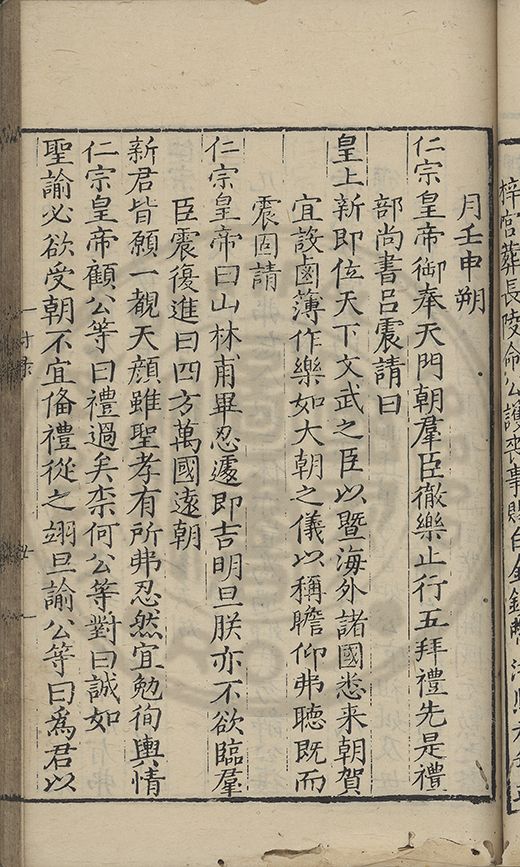 梓宮葬長陵命公護喪事賜白金鈔幣
月壬申朔
仁宗皇帝御奉天門朝羣臣徹樂止行五拜禮先是禮
部尚書呂震請曰
皇上新即位天下文武之臣以暨海外諸國悉来朝賀
宜設鹵薄作樂如大朝之儀以稱瞻仰弗聽既而
震固請
仁宗皇帝曰山林甫畢忍遽即吉明旦朕亦不欲臨羣
臣震復進曰四方萬國遠朝
新君皆願一覩天顔雖聖孝有所弗忍然宜勉徇輿情
仁宗皇帝顧公等曰禮過矣柰何公等對曰誠如
聖諭必欲受朝不宜俻禮從之翊旦諭公等曰爲君以